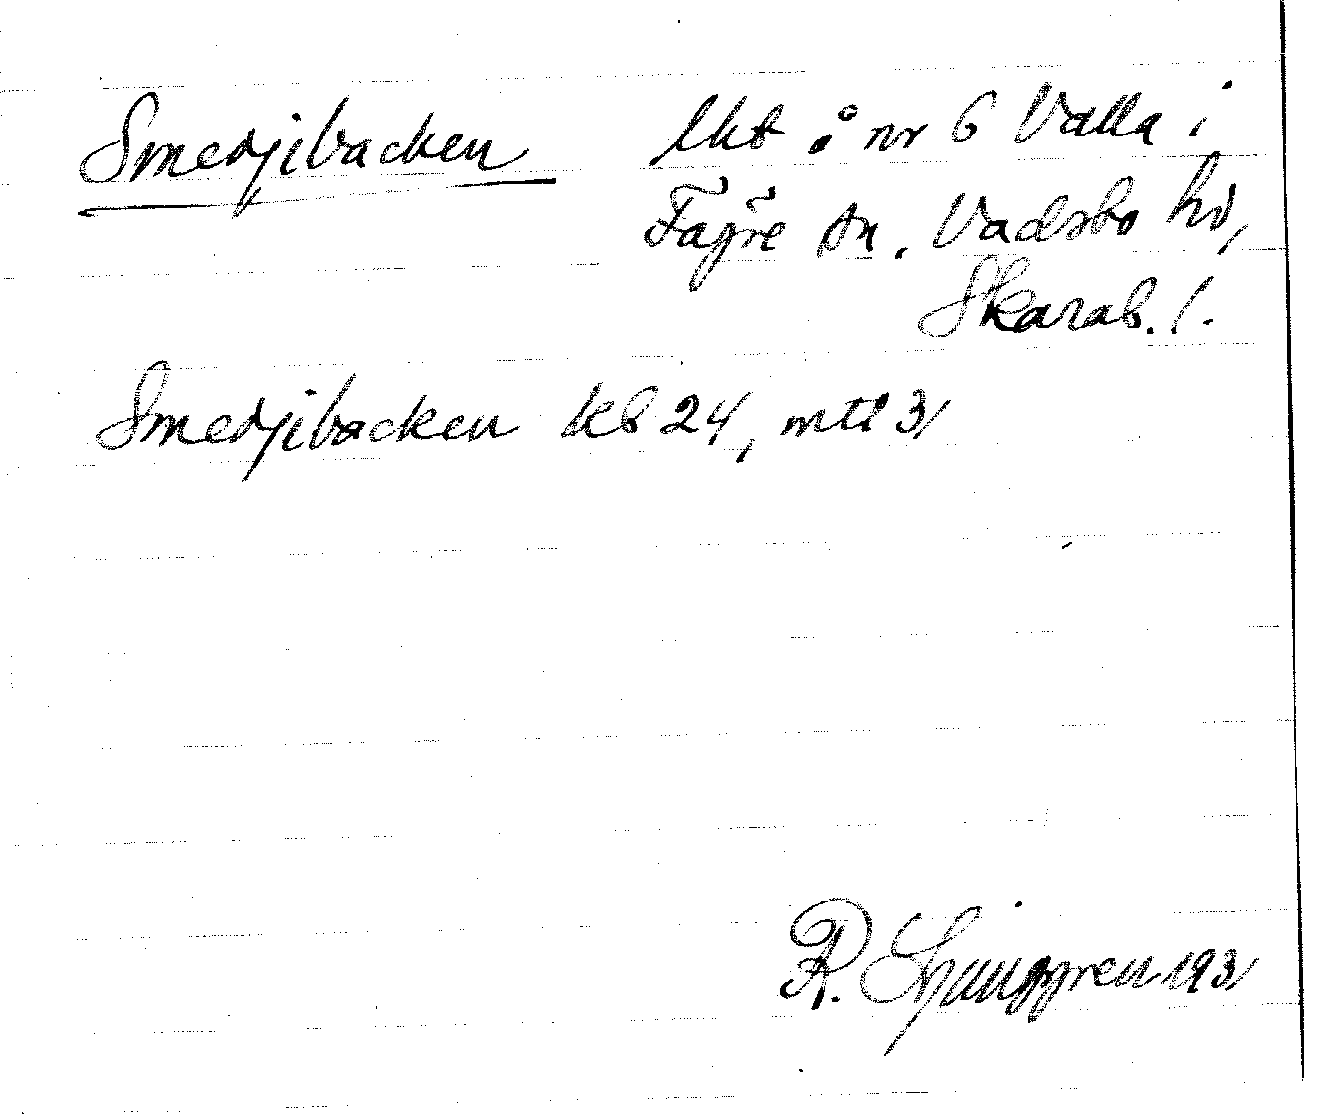 Smedjibacken lht å nr 6 Valla i
Fägre sn. Vadsbo hd,
Skarab. l.
Smedjibacken kb 24, mtl 3/
R. Ljunggren 193/